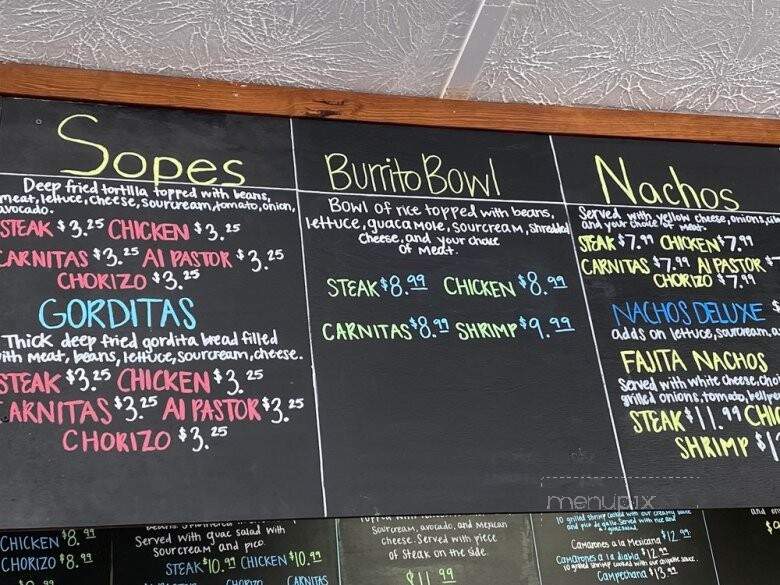 Sopes
Deep fried tortilla topped with beans,
meat, lettuce, cheese, sourcream, tomato, onion,
avocado.
STEAK $3.25 CHICKEN $3.25
CARNITAS $3.25 Al PASTOR $3.25
CHORIZO $3.25
GORDITAS
Thick deep fried gordita bread filled
with meat, beans, lettuce, sourcream, cheese.
STEAK $3.25 CHICKEN $3.25
CARNITAS $3.25 Al PASTOR $3.25
CHORIZO $3.25
Burrito Bowl
Bowl of rice topped with beans,
lettuce, guacamole, sourcream, shredded
cheese, and your choice
of meat.
STEAK $8.99 CHICKEN $8.99
CARNITAS $8.99 SHRIMP $9.99
Nachos
Served with yellow cheese, onions,
and your choice of meat.
STEAK $7.99 CHICKEN $7.99
CARNITAS $7.99 Al PASTOR $7
CHORIZO $7.99
NACHOS DELUXE
adds on lettuce, sourcream,
FAJITA NACHOS
Served with white cheese,
grilled onions, tomato,
STEAK $11.99
SHRIMP $1
menupix
CHICKEN $8.99
CHORIZO $8.99
Served with guac salad with
sourcream and pico
STEAK $10.99 CHICKEN $10.99
CHORIZO CARNITAS
sourcream, avocado, and Mexican
cheese. Served with piece
of steak on the side.
$11.99
10 grilled shrimp cooked with our creamy
and pico de gallo. Served with rice and
Camarones a la Mexicana $12.99
Camarones a la diabla $12.99
10 grilled shrimp cooked with our chipotle sauce.
Campechana $13.99
and